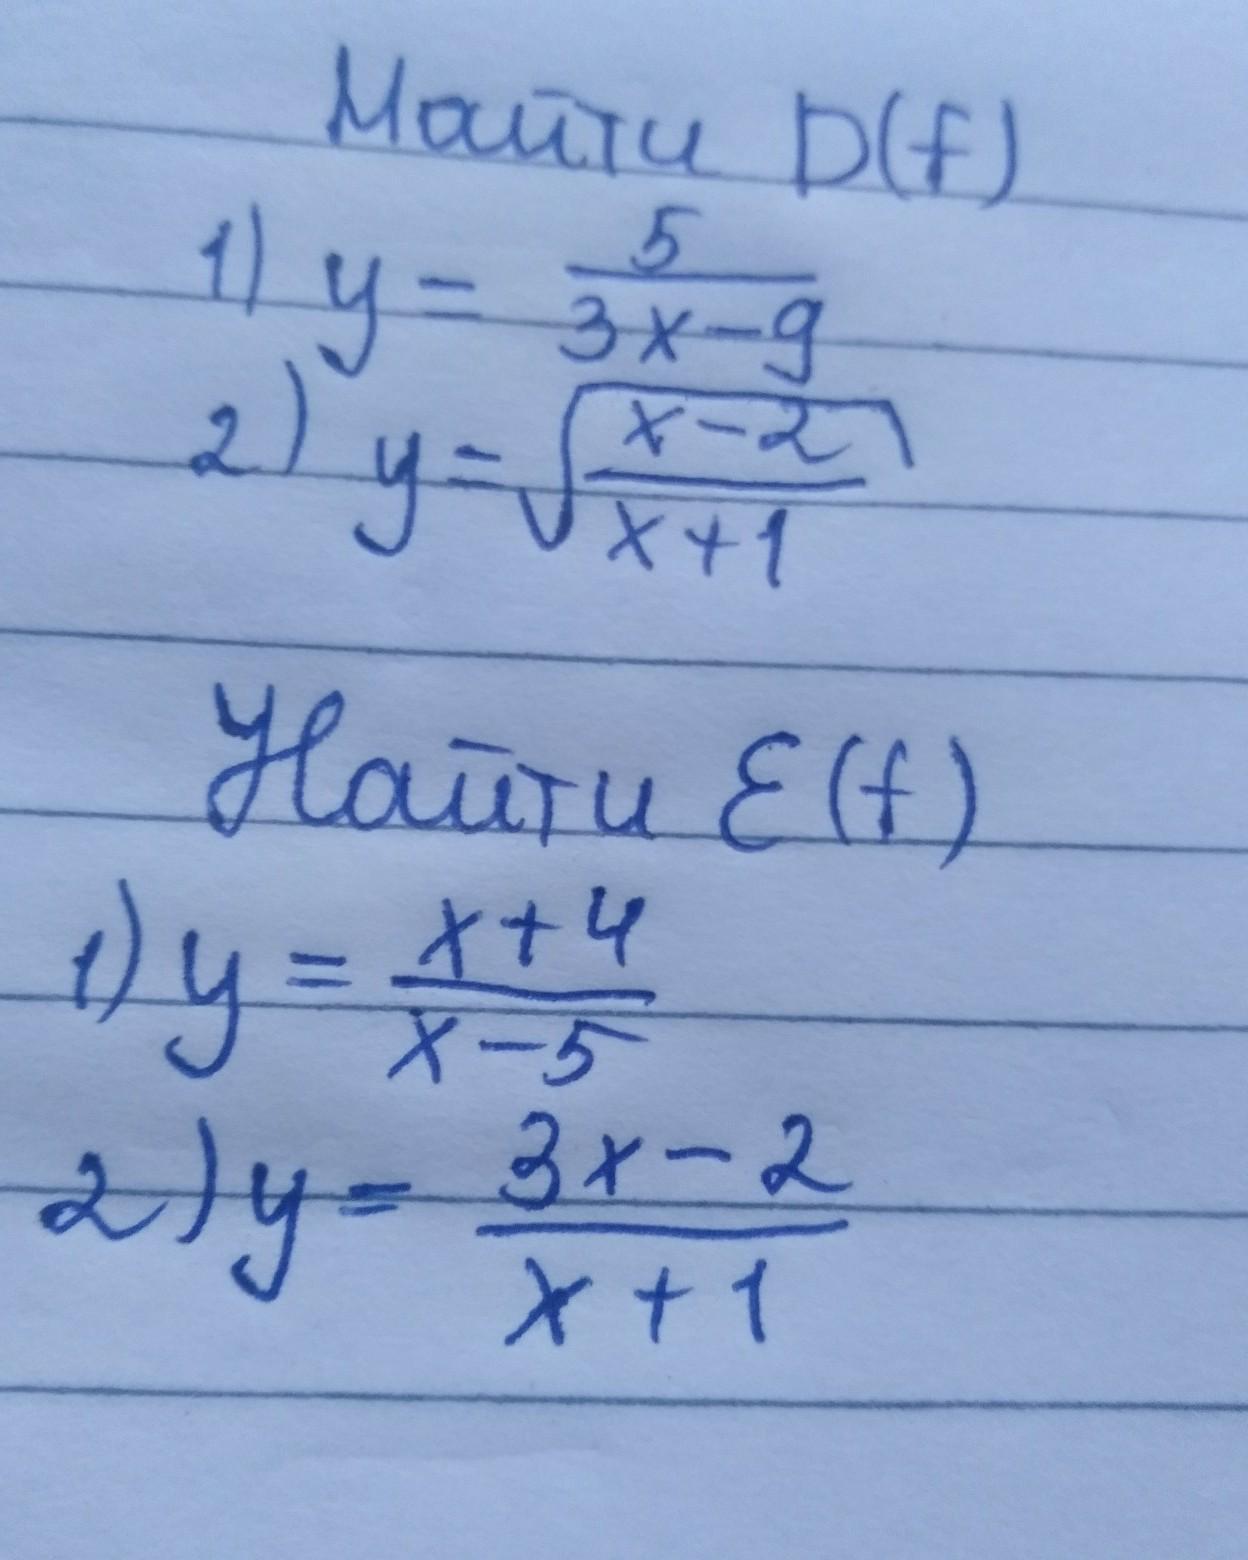 Найти D(f)
1) y = 5/(3x-9)
2) y = √((x-2)/(x+1))
Найти E(f)
1) y = (x+4)/(x-5)
2) y = (3x-2)/(x+1)